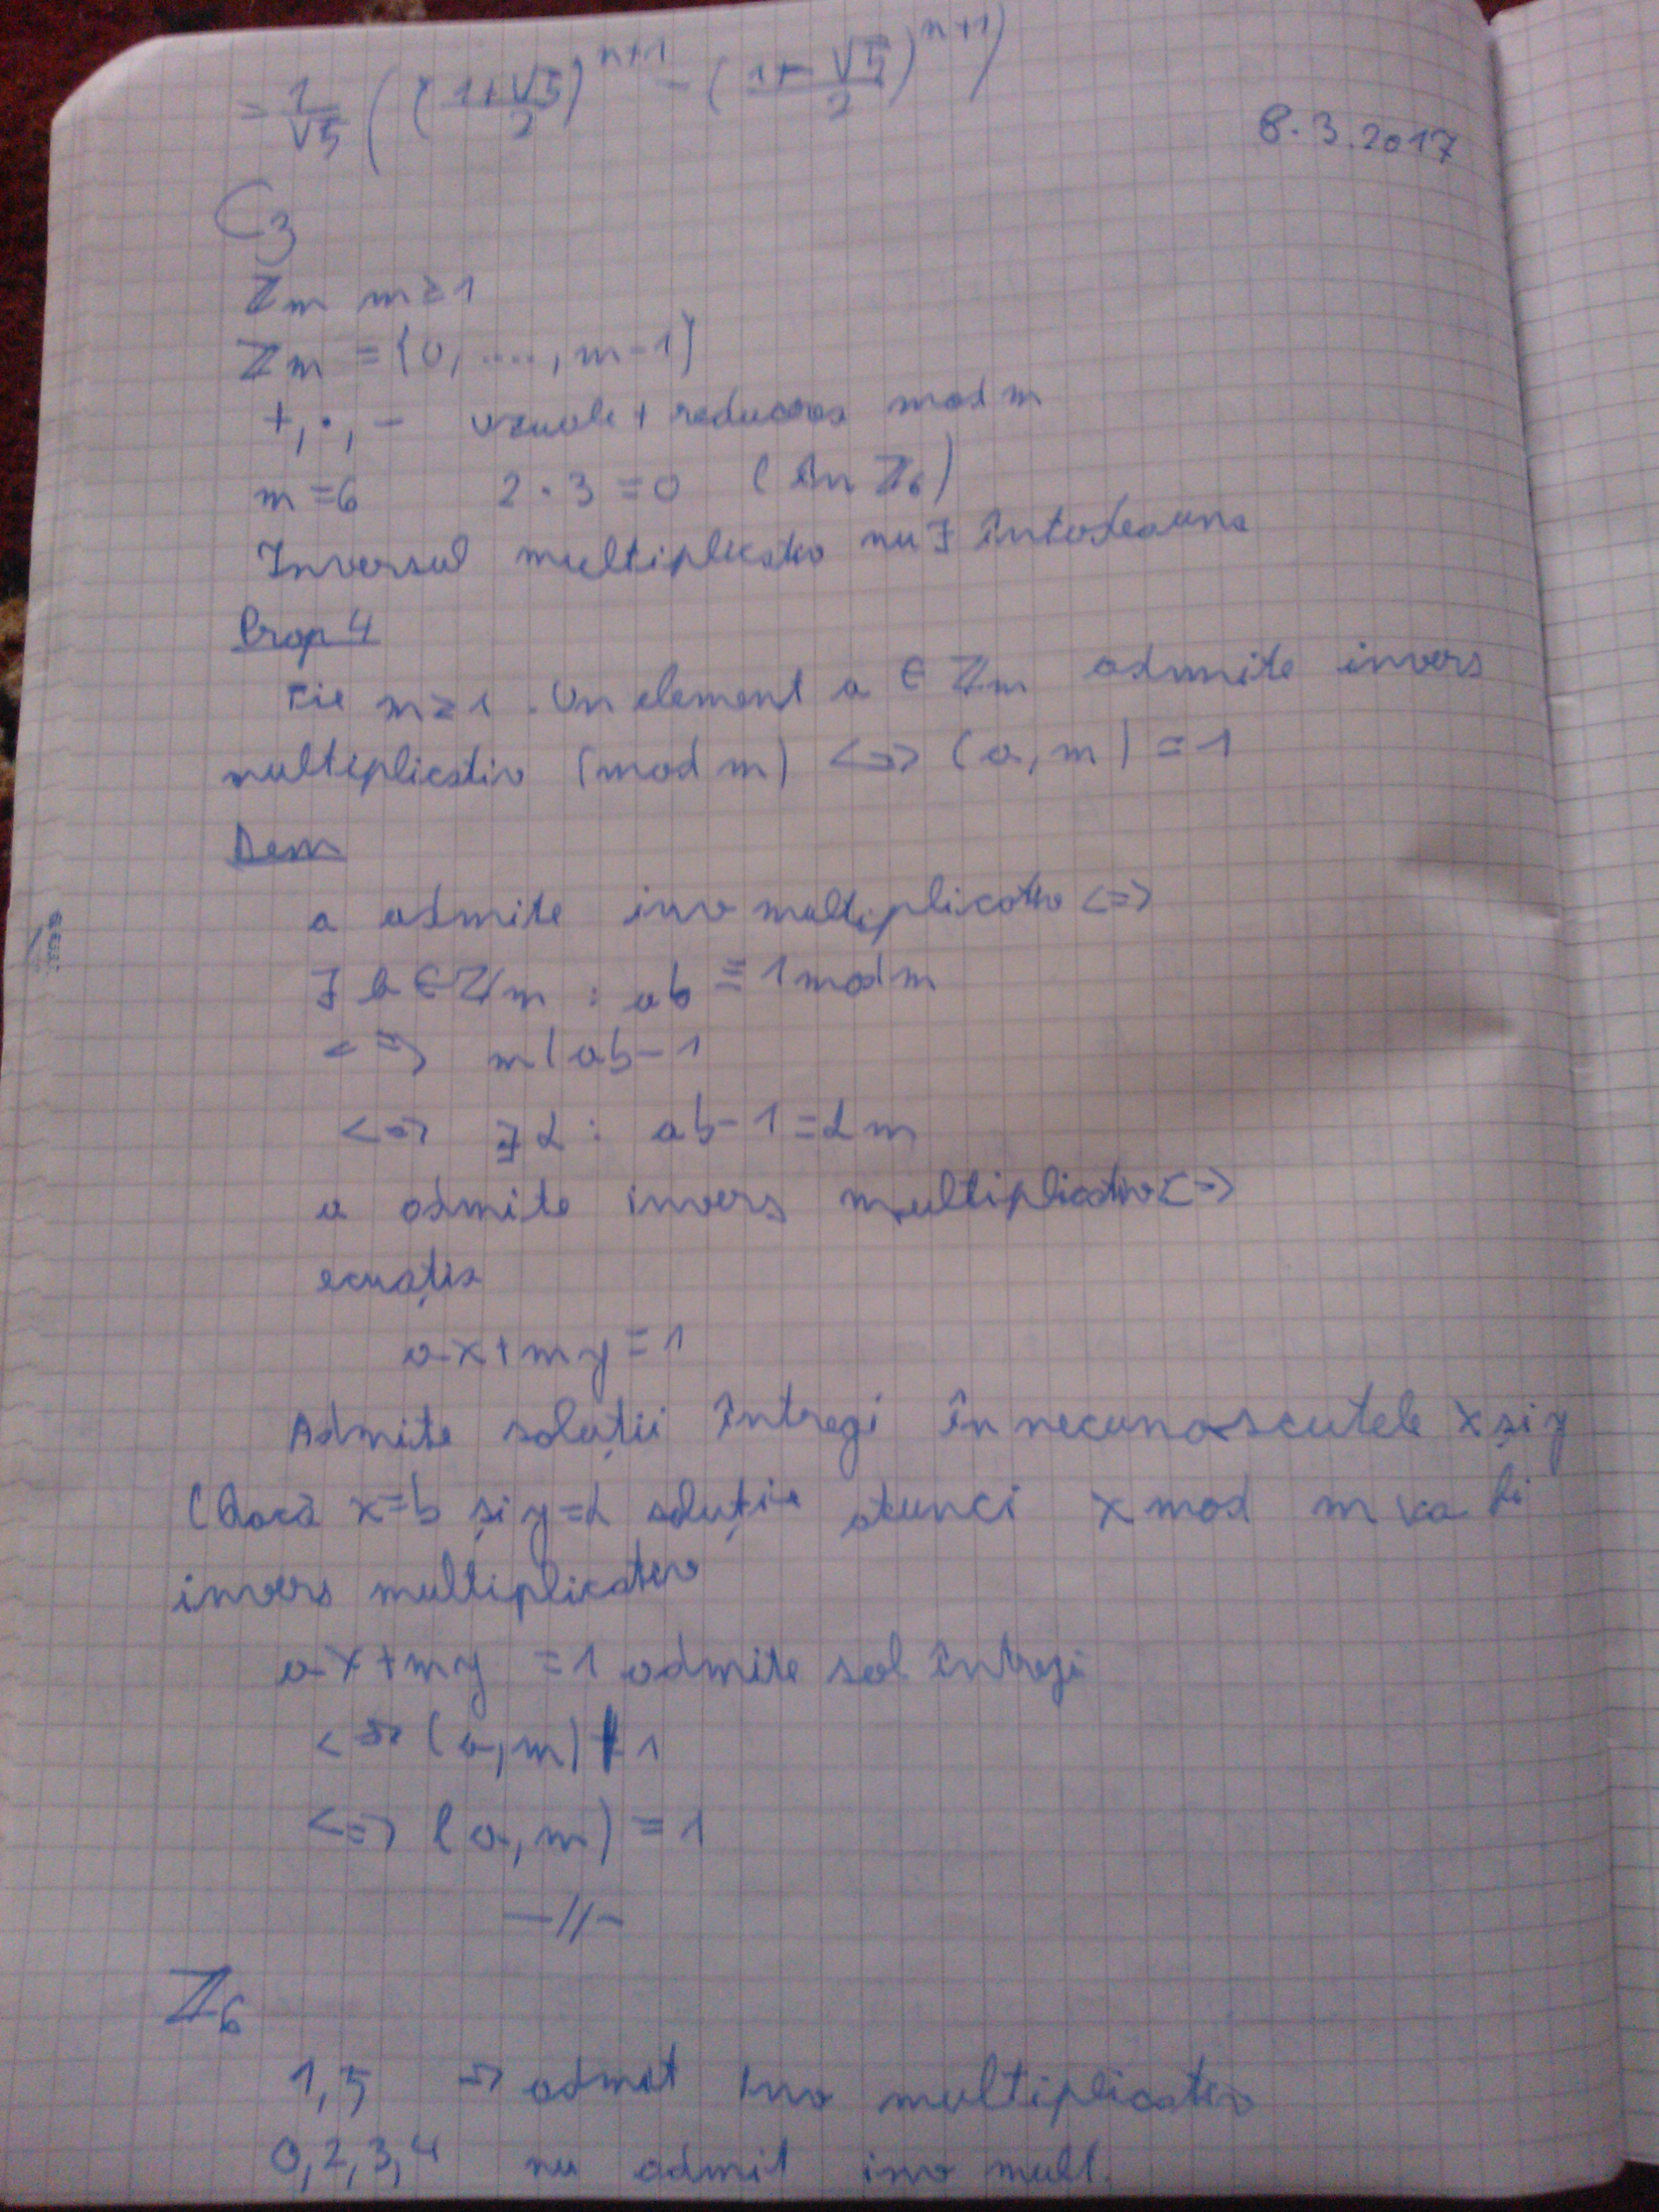 = 1/√5 ((1+√5/2)^n+1 - (1-√5/2)^n+1)
8.3.2017
C3
ℤm m≥1
ℤm = {0, ...., m-1}
+, ·, - uzuale + reducerea mod m
m=6 2·3=0 (în ℤ6)
Inversul multiplicativ nu ∃ întotdeauna
Prop 4
Fie m≥1. Un element a ∈ ℤm admite invers
multiplicativ (mod m) <=> (a, m) = 1
Dem
a admite inv multiplicativ <=>
∃ b ∈ ℤm : ab ≡ 1 mod m
<=> m | ab-1
<=> ∃ α : ab-1 = α m
a admite invers multiplicativ <=>
ecuația
ax+my=1
Admite soluții întregi în necunoscutele x și y
(Dacă x=b și y=α soluție atunci x mod m va fi
invers multiplicativ
ax+my =1 admite sol întregi
<=> (a, m) | 1
<=> (a, m) = 1
—//—
ℤ6
1, 5 => admit inv multiplicativ
0, 2, 3, 4 nu admit inv mult.